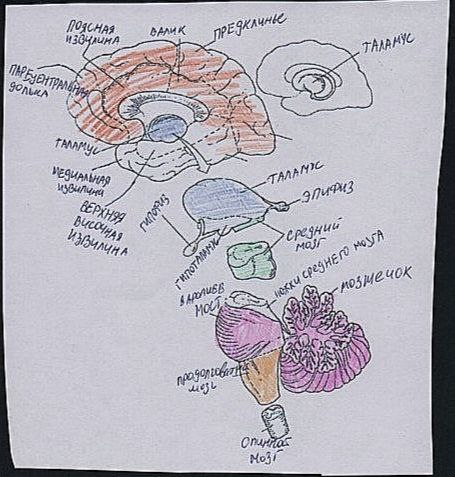 ПОЯСНАЯ
ИЗВИЛИНА
ВАЛИК
ПРЕДКЛИНЬЕ
ТАЛАМУС
ПАРЕЦЕНТРАЛЬНАЯ
ДОЛЬКА
ТАЛАМУС
МЕДИАЛЬНАЯ
ИЗВИЛИНА
ВЕРХНЯЯ
ВИСОЧНАЯ
ИЗВИЛИНА
ТАЛАМУС
ЭПИФИЗ
ГИПОФИЗ
ГИПОТАЛАМУС
СРЕДНИЙ
МОЗГ
ВАРОЛИЕВ
МОСТ
НОЖКИ СРЕДНЕГО МОЗГА
МОЗЖЕЧОК
ПРОДОЛГОВАТ
МОЗГ
СПИННОЙ
МОЗГ